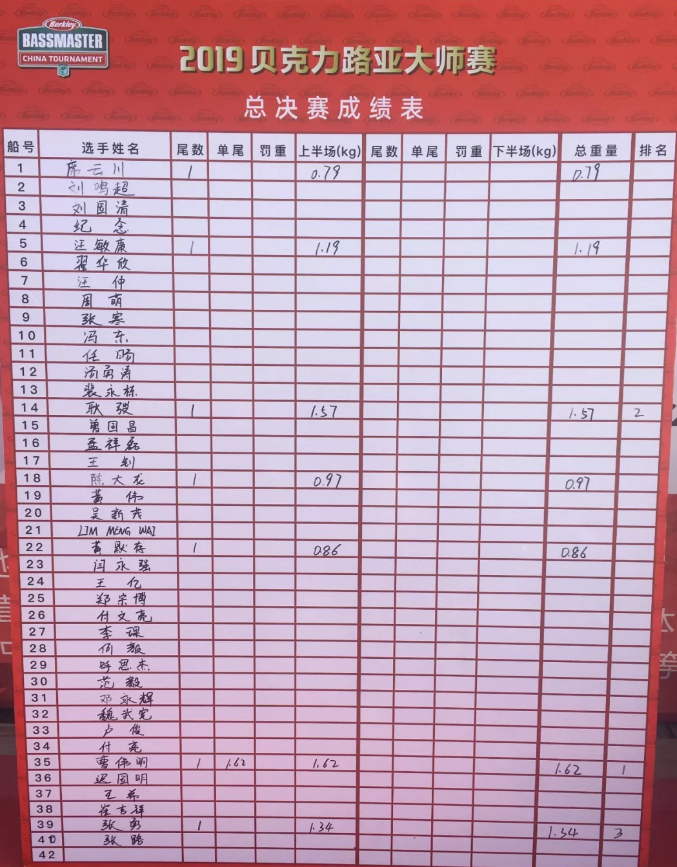 Berkley
BASSMASTER
CHINA TOURNAMENT
2019贝克力路亚大师赛
总决赛成绩表
船号 选手姓名 尾数 单尾 罚重 上半场(kg) 尾数 单尾 罚重 下半场(kg) 总重量 排名
1 席云川 1 0.79 0.79
2 刘鸣超
3 刘国清
4 纪念
5 汪敏康 1 1.19 1.19
6 翟华欣
7 汪仲
8 周萌
9 张寒
10 冯东
11 任旸
12 汤勇涛
13 裴永栋
14 耿强 1 1.57 1.57 2
15 曾国昌
16 孟祥磊
17 王钊
18 陈大龙 1 0.97 0.97
19 黄伟
20 吴新茂
21 LIM MENG WAI
22 黄耿存 1 0.86 0.86
23 闫永强
24 王亿
25 郑宗博
26 付文亮
27 李琛
28 何毅
29 思杰
30 范毅
31 邓永辉
32 魏武宪
33 卢俊
34 付亮
35 曹伟明 1 1.62 1.62 1.62 1
36 国明
37 王希
38 崔吉祥
39 张勇 1 1.34 1.34 3
40 张路
42